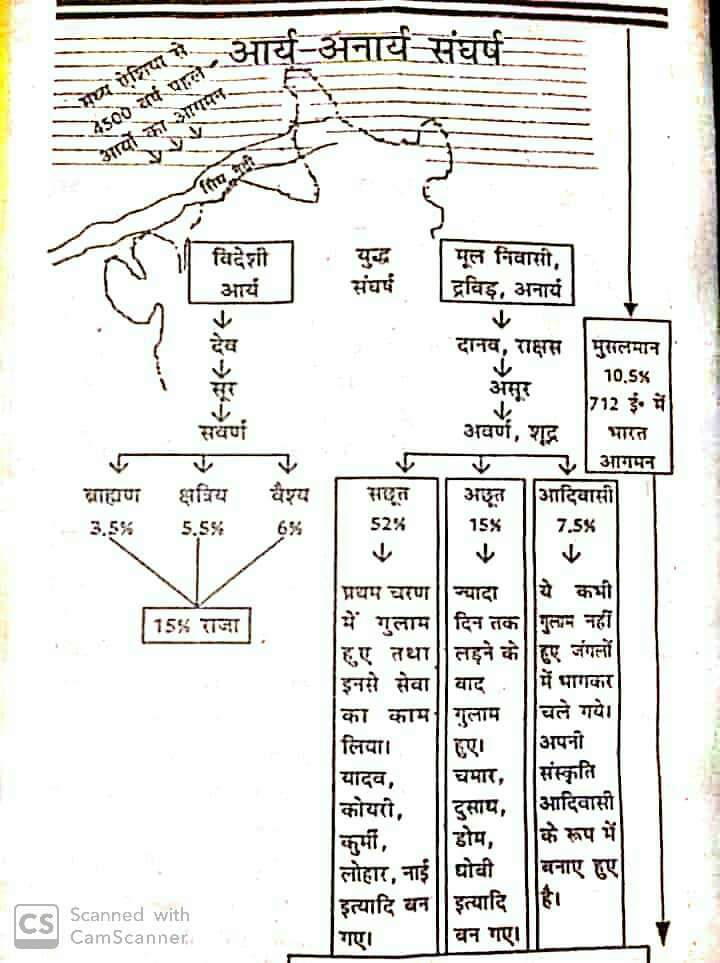 आर्य-अनार्य संघर्ष
मध्य ऐशिया से
4500 वर्ष पहले
आर्यो का आगमन
विदेशी
आर्य
युद्ध
संघर्ष
मूल निवासी,
द्रविड़, अनार्य
देव
सूर
सवर्ण
दानव, राक्षस
असूर
अवर्ण, शूद्र
मुसलमान
10.5%
712 ई॰ में
भारत
आगमन
ब्राह्मण
3.5%
क्षत्रिय
5.5%
वैश्य
6%
15% राजा
सछूत
52%
प्रथम चरण
में गुलाम
हुए तथा
इनसे सेवा
का काम
लिया।
यादव,
कोयरी,
कुर्मी,
लोहार, नाई
इत्यादि बन
गए।
अछूत
15%
ज्यादा
दिन तक
लड़ने के
बाद
गुलाम
हुए।
चमार,
दुसाध,
डोम,
धोबी
इत्यादि
बन गए।
आदिवासी
7.5%
ये कभी
गुलाम नहीं
हुए जंगलों
में भागकर
चले गये।
अपनी
संस्कृति
आदिवासी
के रूप में
बनाए हुए
है।
CS Scanned with
CamScanner